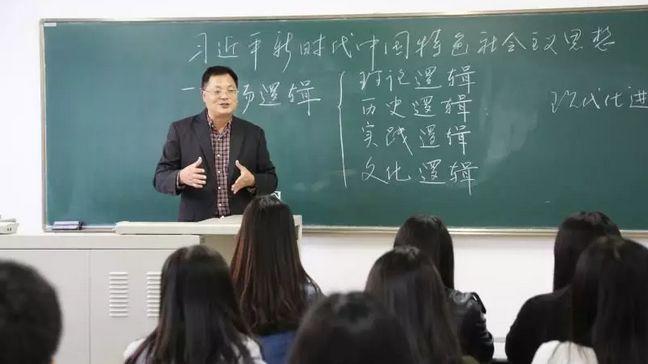 习近平新时代中国特色社会主义思想
一 场逻辑
理论逻辑
历史逻辑
实践逻辑
文化逻辑
现代化进